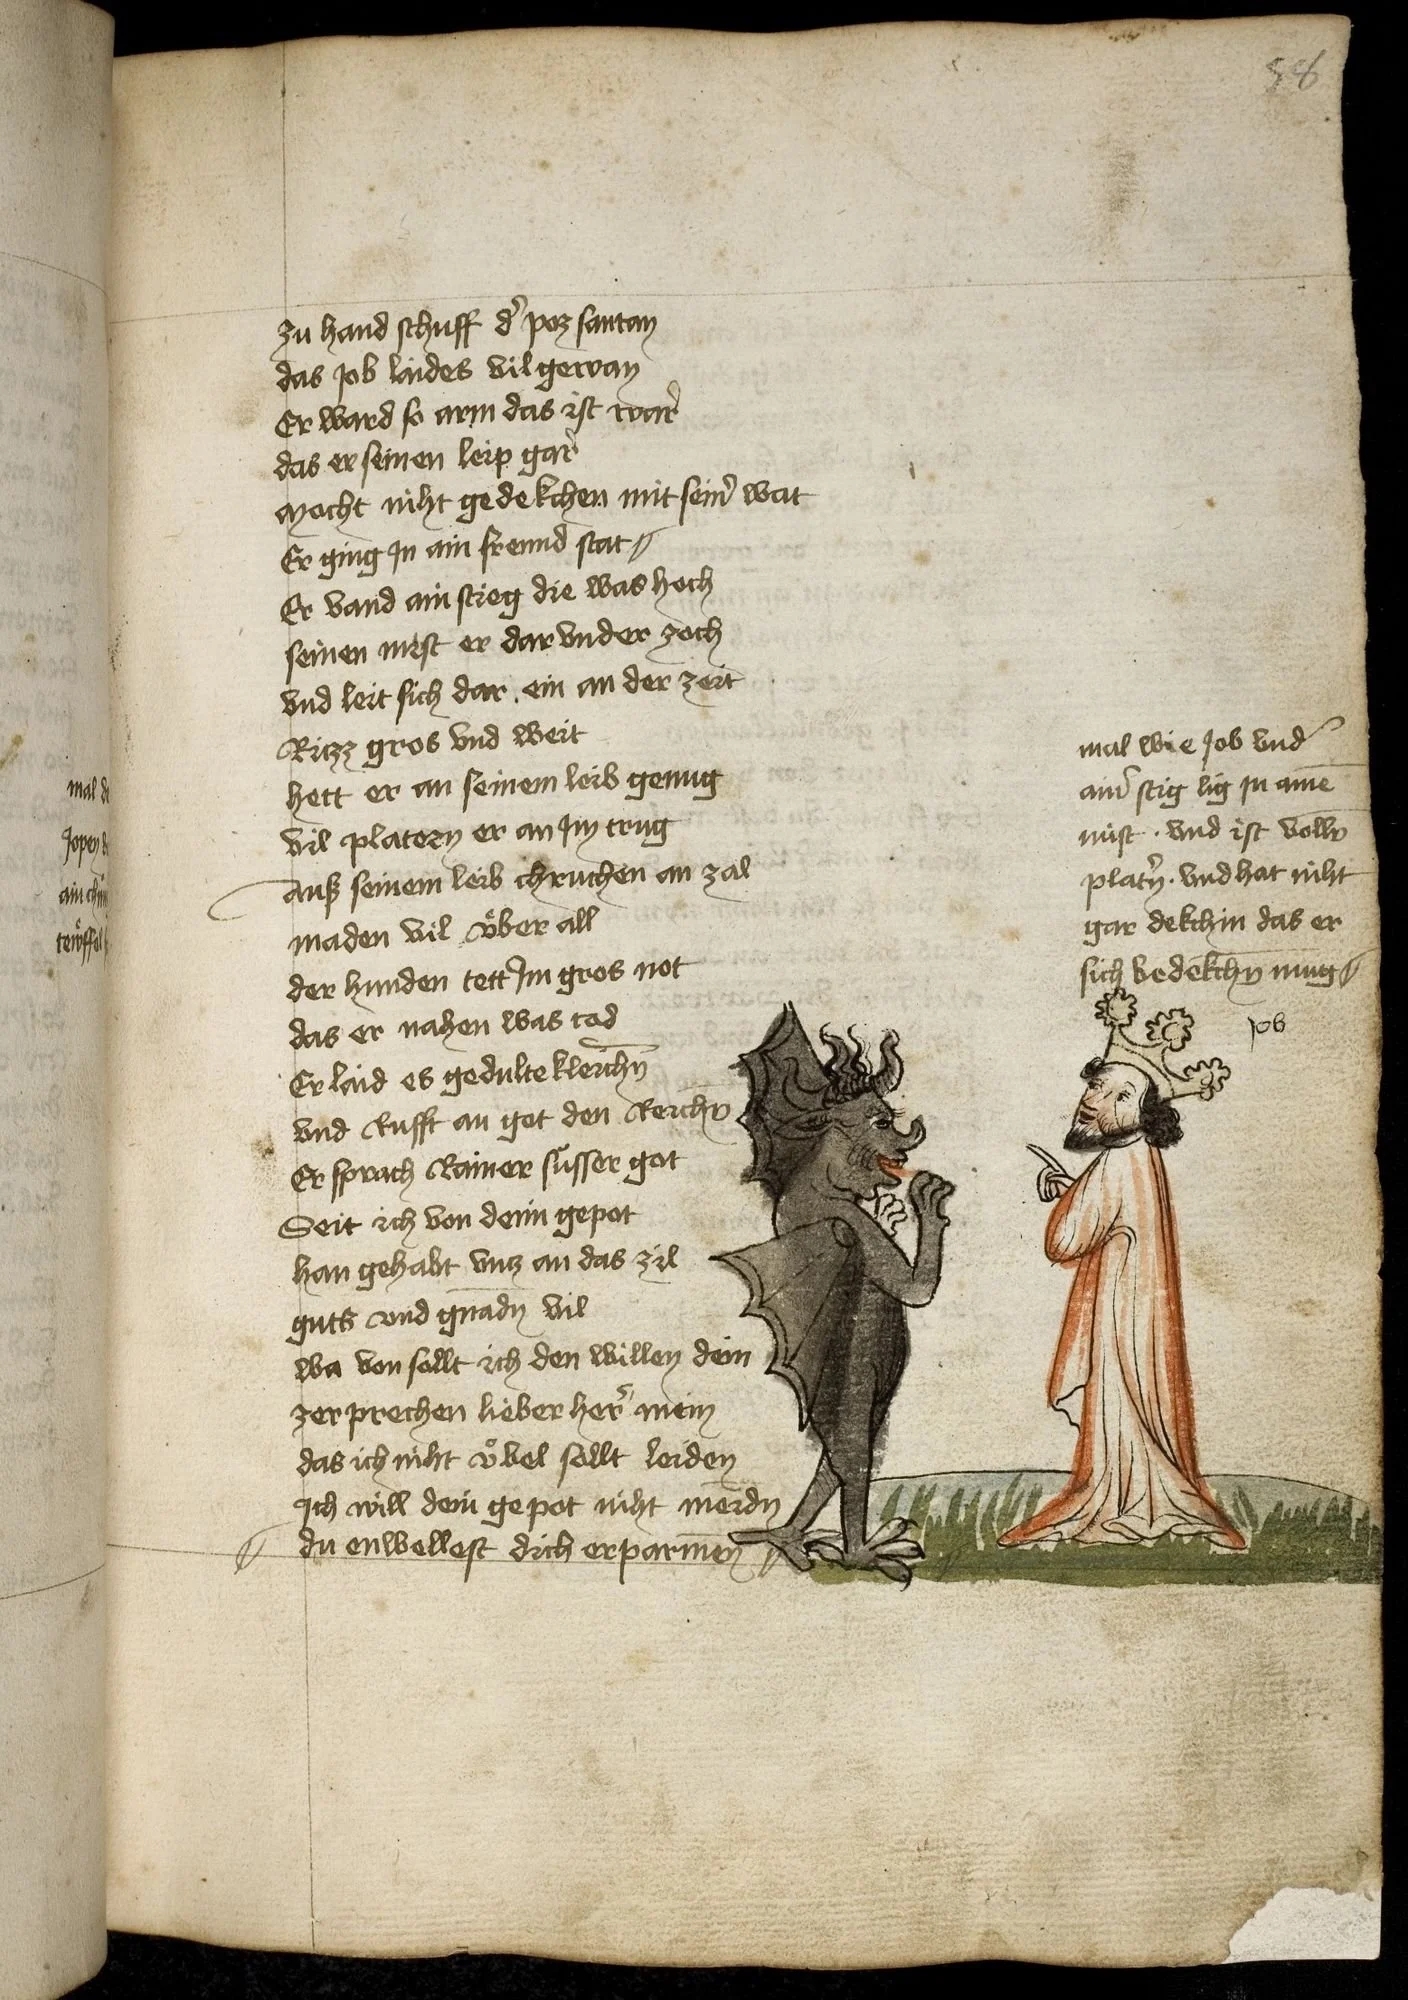 58
zu hand schuff d' poz santan
das Job laides vil gewan
Er ward so arm das ist war
das er seinen leip gar
Mocht niht gedekchen mit sein' wat
Er ging Jn ain fremd stat
Er vand ain stieg die was hoch
seinen mist er dar vnder zoch
vnd leit sich dar ein an der zeit
Rizz gros vnd weit
hett er an seinem leib genug
vil platern er an Jm trug
auß seinem leib chruchen an zal
maden vil vͤber all
der hunden tett Jm gros not
das er nahen was tod
Er laid es gedultekleichn̄
vnd Rufft an got den Reichn̄
Er sprach Rainer sůsser got
Seit ich von deim gepot
han gehabt vntz an das zil
guts vnd gnadn̄ vil
wa von sollt ich den willen dein
zerprechen lieber herr mein
das ich niht vͤbel sollt leiden
Ich will dein gepot niht meidn̄
du enwellest dich erparmen
mal wie Job vnd'
ain' stig lig Jn aine̅
mist . vnd ist voller
plat'n . vnd hat niht
gar dekchin das er
sich bedekchn̄ mug
Job
mal d
Jopen
ain
teuffel